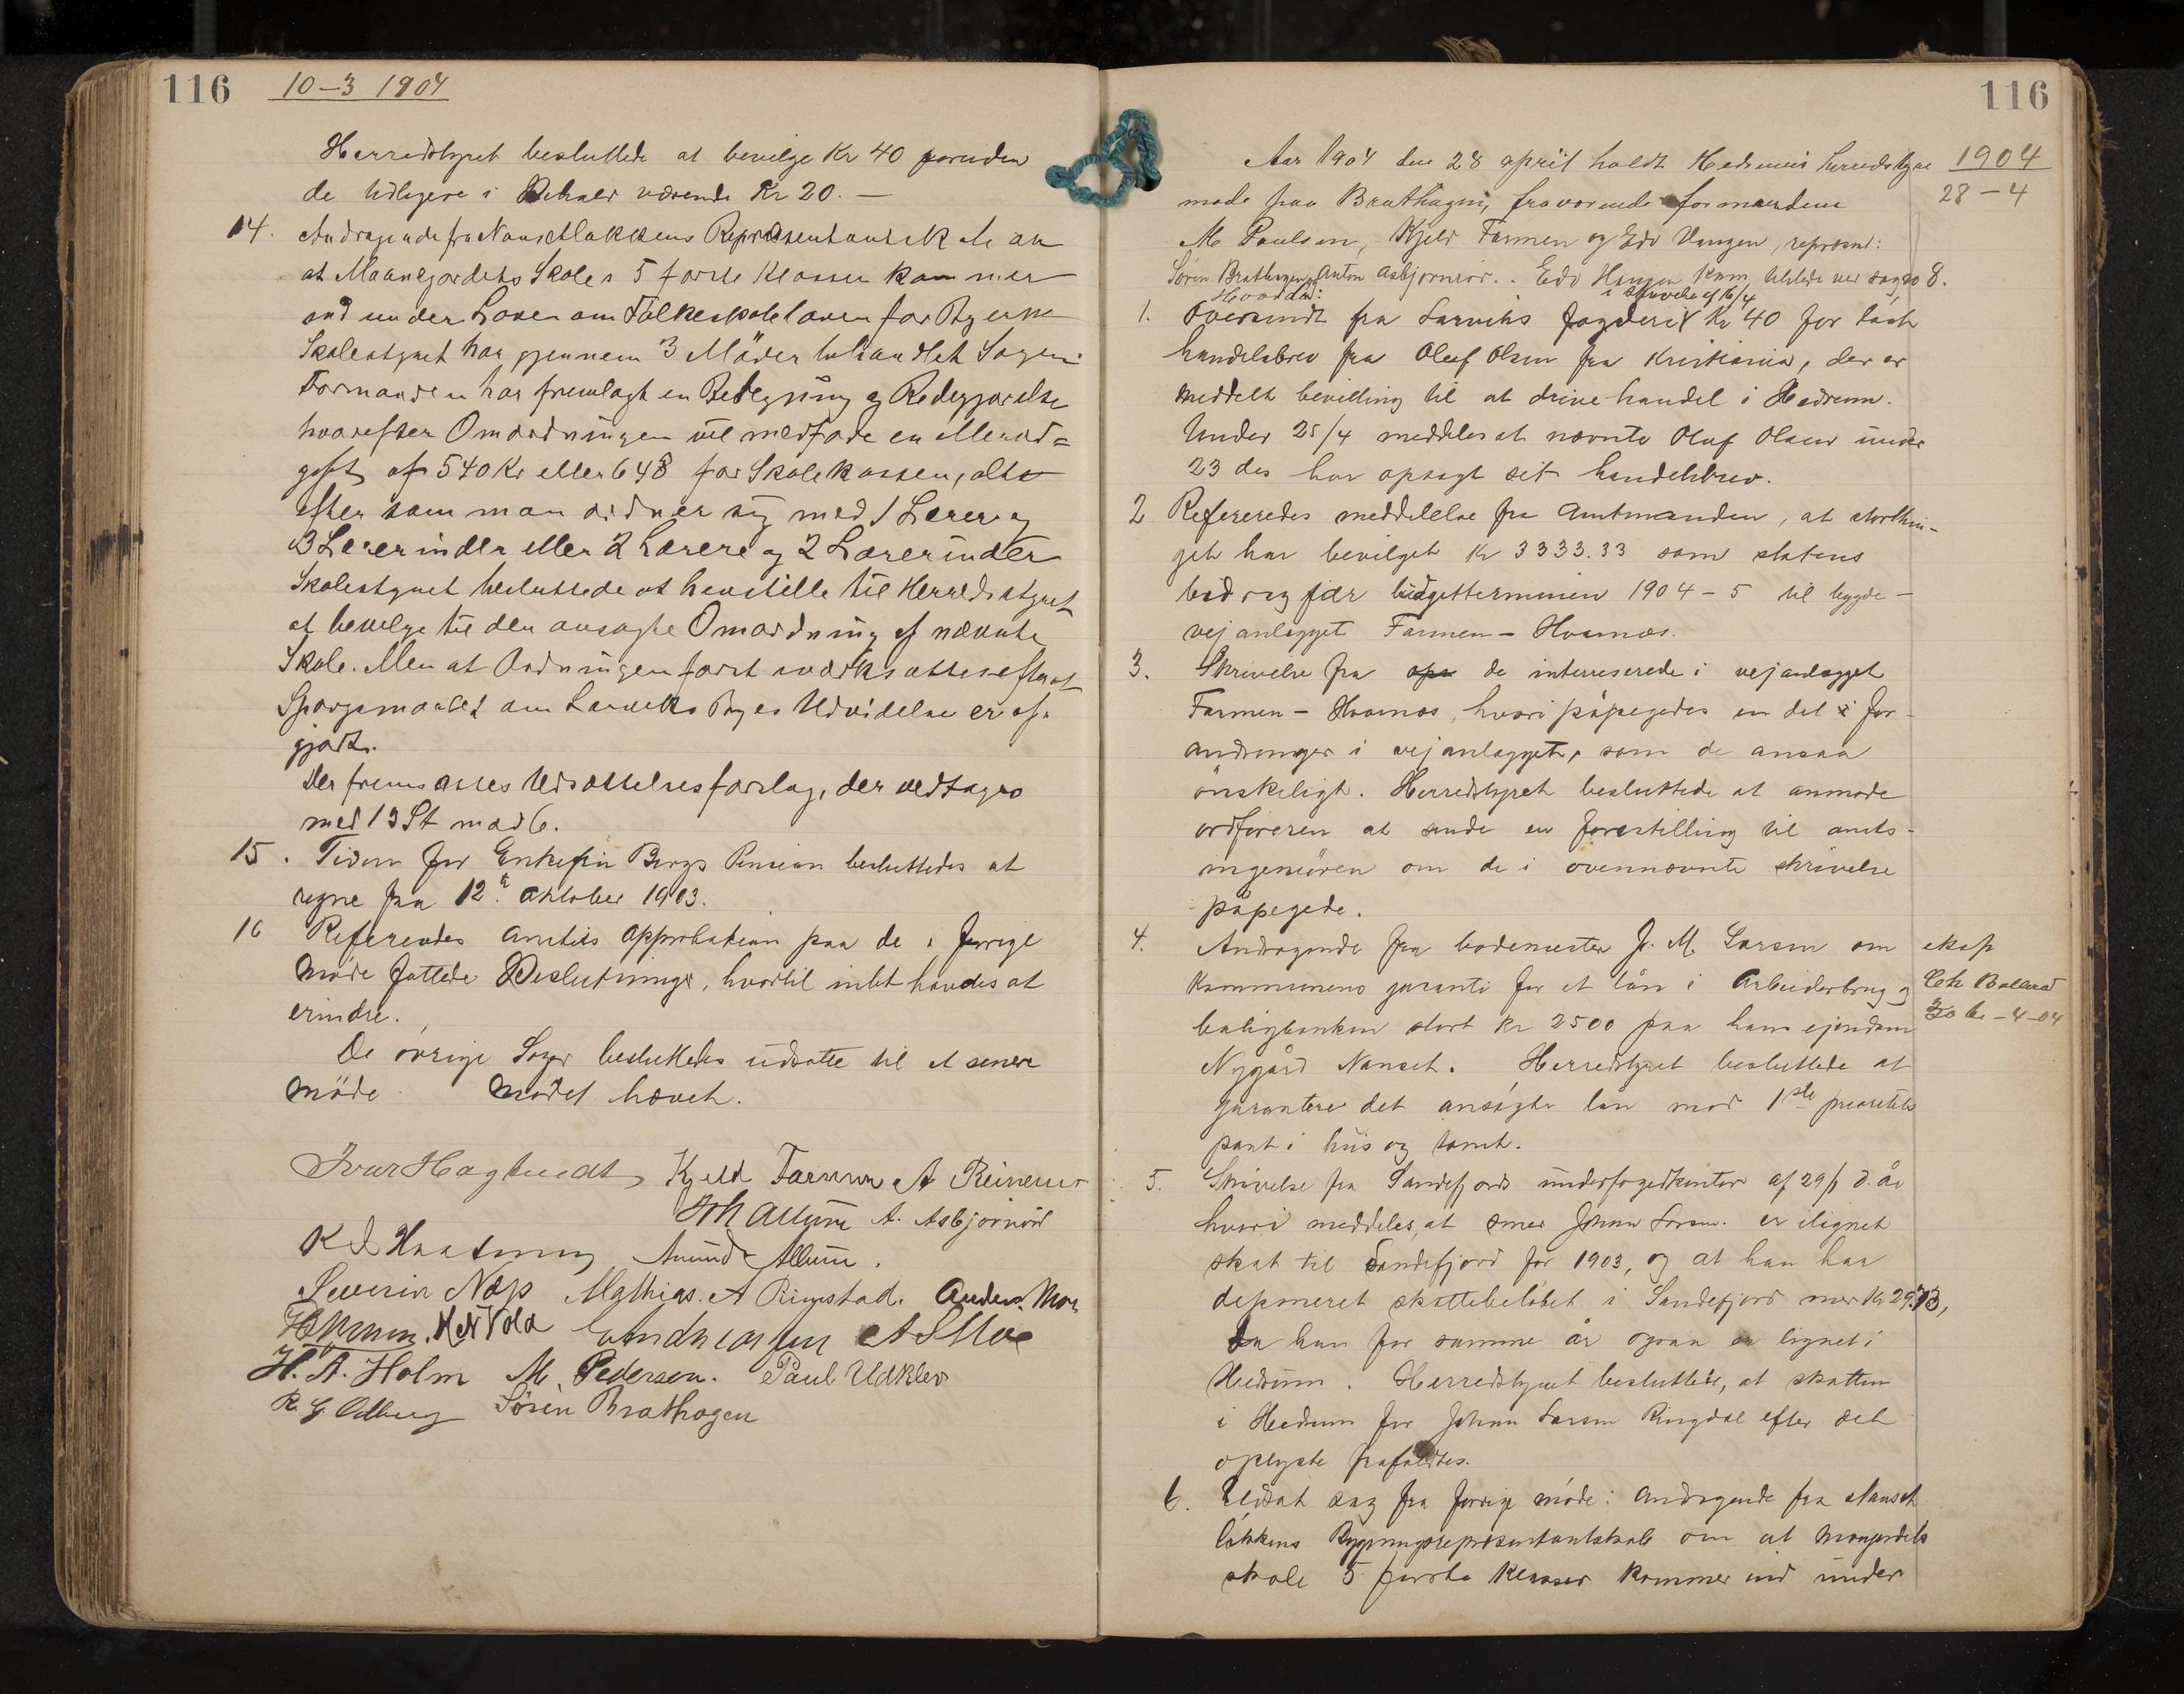 116 10-3 1904
Herredstyret besluttede at bevilge Kr 40 foruden
de tidligere i Behold værende Kr 20. —
14. Andragende fra Nansetløkkens Repræsentantsk om
at Maangjordets Skoles 5 første Klasser kommer
ind under Loven om Folkeskoleloven for Byerne
Skolestyret har gjennem 3 Möder behandlet Sagen.
Formanden har fremlagt en Beregning og Redegjørelse
hvorefter Omordningen vil medføre en Merud=
gift af 540 Kr eller 648 for Skolekassen, alt
efter som man ordner sig med 1 Lærer og
3 Lærerinder eller 2 Lærere og 2 Lærerinder
Skolestyret besluttede at henstille til Herredsstyret
at bevilge til den ansøgte Omordning af nævnte
Skole. Men at Ordningen først iværksættes efterat
Spørgsmaalet om Larviks Byes Udvidelse er af-
gjørt.
Der fremsattes Udsættelsesforslag, der vedtages
med 13 St mod 6.
15. Tiden for Enkefru Bergs Pension besluttedes at
regne fra 12te oktober 1903.
16 Refereredes Amtets Approbation paa de i forrige
Møde fattede Beslutninger, hvortil intet havdes at
erindre.
De øvrige Sager besluttedes udsatte til et senere
Møde Mødet hævet.
Ivar Haglundt, Kjeld Farmen A Reinerus
Joh Allum A. Asbjørnröd
K d Haatveng Amund Allum.
Severin Næs Mathias. A Ringstad. Anders. Moe
A S Moe
H. A. Holm M. Pedersen. Paul Udklev
R G Odberg Søren Brathagen
116
Aar 1904 den 28 april holdt Hedrums herredstyre 1904
møde paa Brathagen, fraværende formændene 28 - 4
M Paulsen, Kjeld Farmen og Edv Vangen, repræsent:
Søren Brathagen og Anton Asbjørnröd.. Edv Hansen kom tilstede ved sag no 8.
Hvordda: i skrivelse af 16/4
1. Oversendt fra Larviks fogderi Kr 40 for løst
handelsbrev fra Oluf Olsen fra Kristiania, der er
meddelt bevilling til at drive handel i Hedrum.
Under 25/4 meddeles at nævnte Oluf Olsen under
23 ds har opsagt sit handelsbrev.
2 Refereredes meddelelse fra Amtmanden, at storthin-
get har bevilget Kr 3333.33 som statens
bidrag for budgetterminen 1904 - 5 til bygde-
vejanlægget Farmen - Hvarnæs.
3. Skrivelse fra de interreserede i vejanlægget
Farmen - Hvarnæs, hvori påpegedes en del for-
andringer i vejanlægget, som de ansaa
önskeligt. Herredstyret besluttede at anmode
ordføreren at sende en forestilling til amts-
ingeniören om de i ovennævnte skrivelse
påpegede.
4. Andragende fra bademester J. M. Larsen om eksp
Kommunens garanti for et lån i Arbeiderbrug og
boligbanken stort Kr 2500 paa hans ejendom
Nygård Nanset. Herredstyret besluttede at
garantere det ansøgte lån mod 1ste prioritets
pant i hus og tomt.
5. Skrivelse fra Sandefjords underfogedkontor af 29/1 d. år
hvori meddeles, at smed Johan Larsen er ilignet
skat til Sandefjord for 1903, og at han har
deponeret skattebeløbet i Sandefjord med Kr 29.73,
da han for samme år ogsaa er lignet i
Hedrum. Herredstyret besluttede, at skatten
i Hedrum for Johan Larsen Ringdal efter det
oplyste frafaldtes.
6. Udsat sag fra forrige møde: Andragende fra Nanset
løkkens Bygningsrepræsentantskab om at Mangjordets
skole 5 første klasser kommer ind under